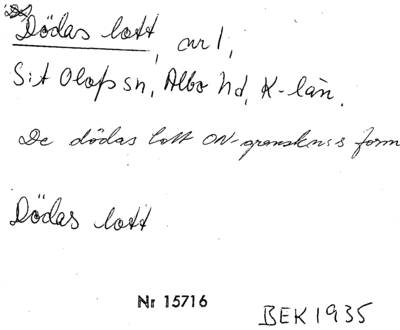 Dödas lott, avl,
S:t Olofs sn, Albo hd, K-län.
De dödas lott ON-gransknis form
Dödas lott
Nr 15716
BEK 1935